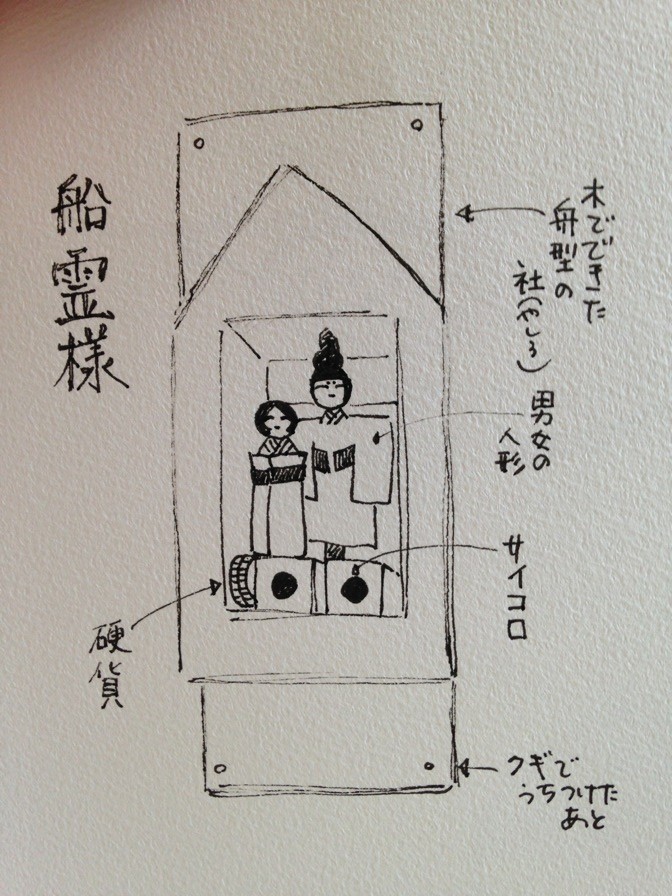 船霊様
木でできた
舟型の
社(やしろ)
男女の
人形
サイコロ
硬貨
クギで
うちつけた
あと